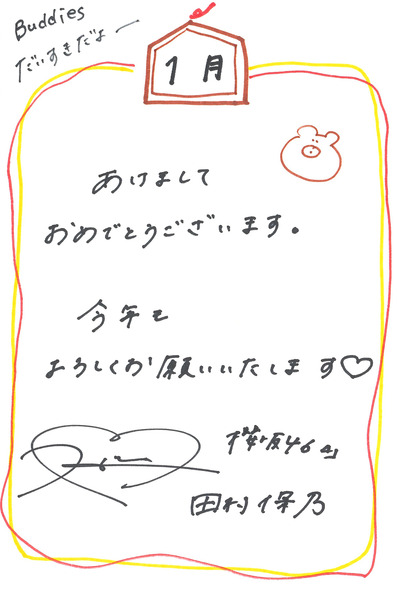 Buddies
だいすきだよー
1月
あけまして
おめでとうございます。
今年も
よろしくお願いいたします♡
櫻坂46
田村保乃